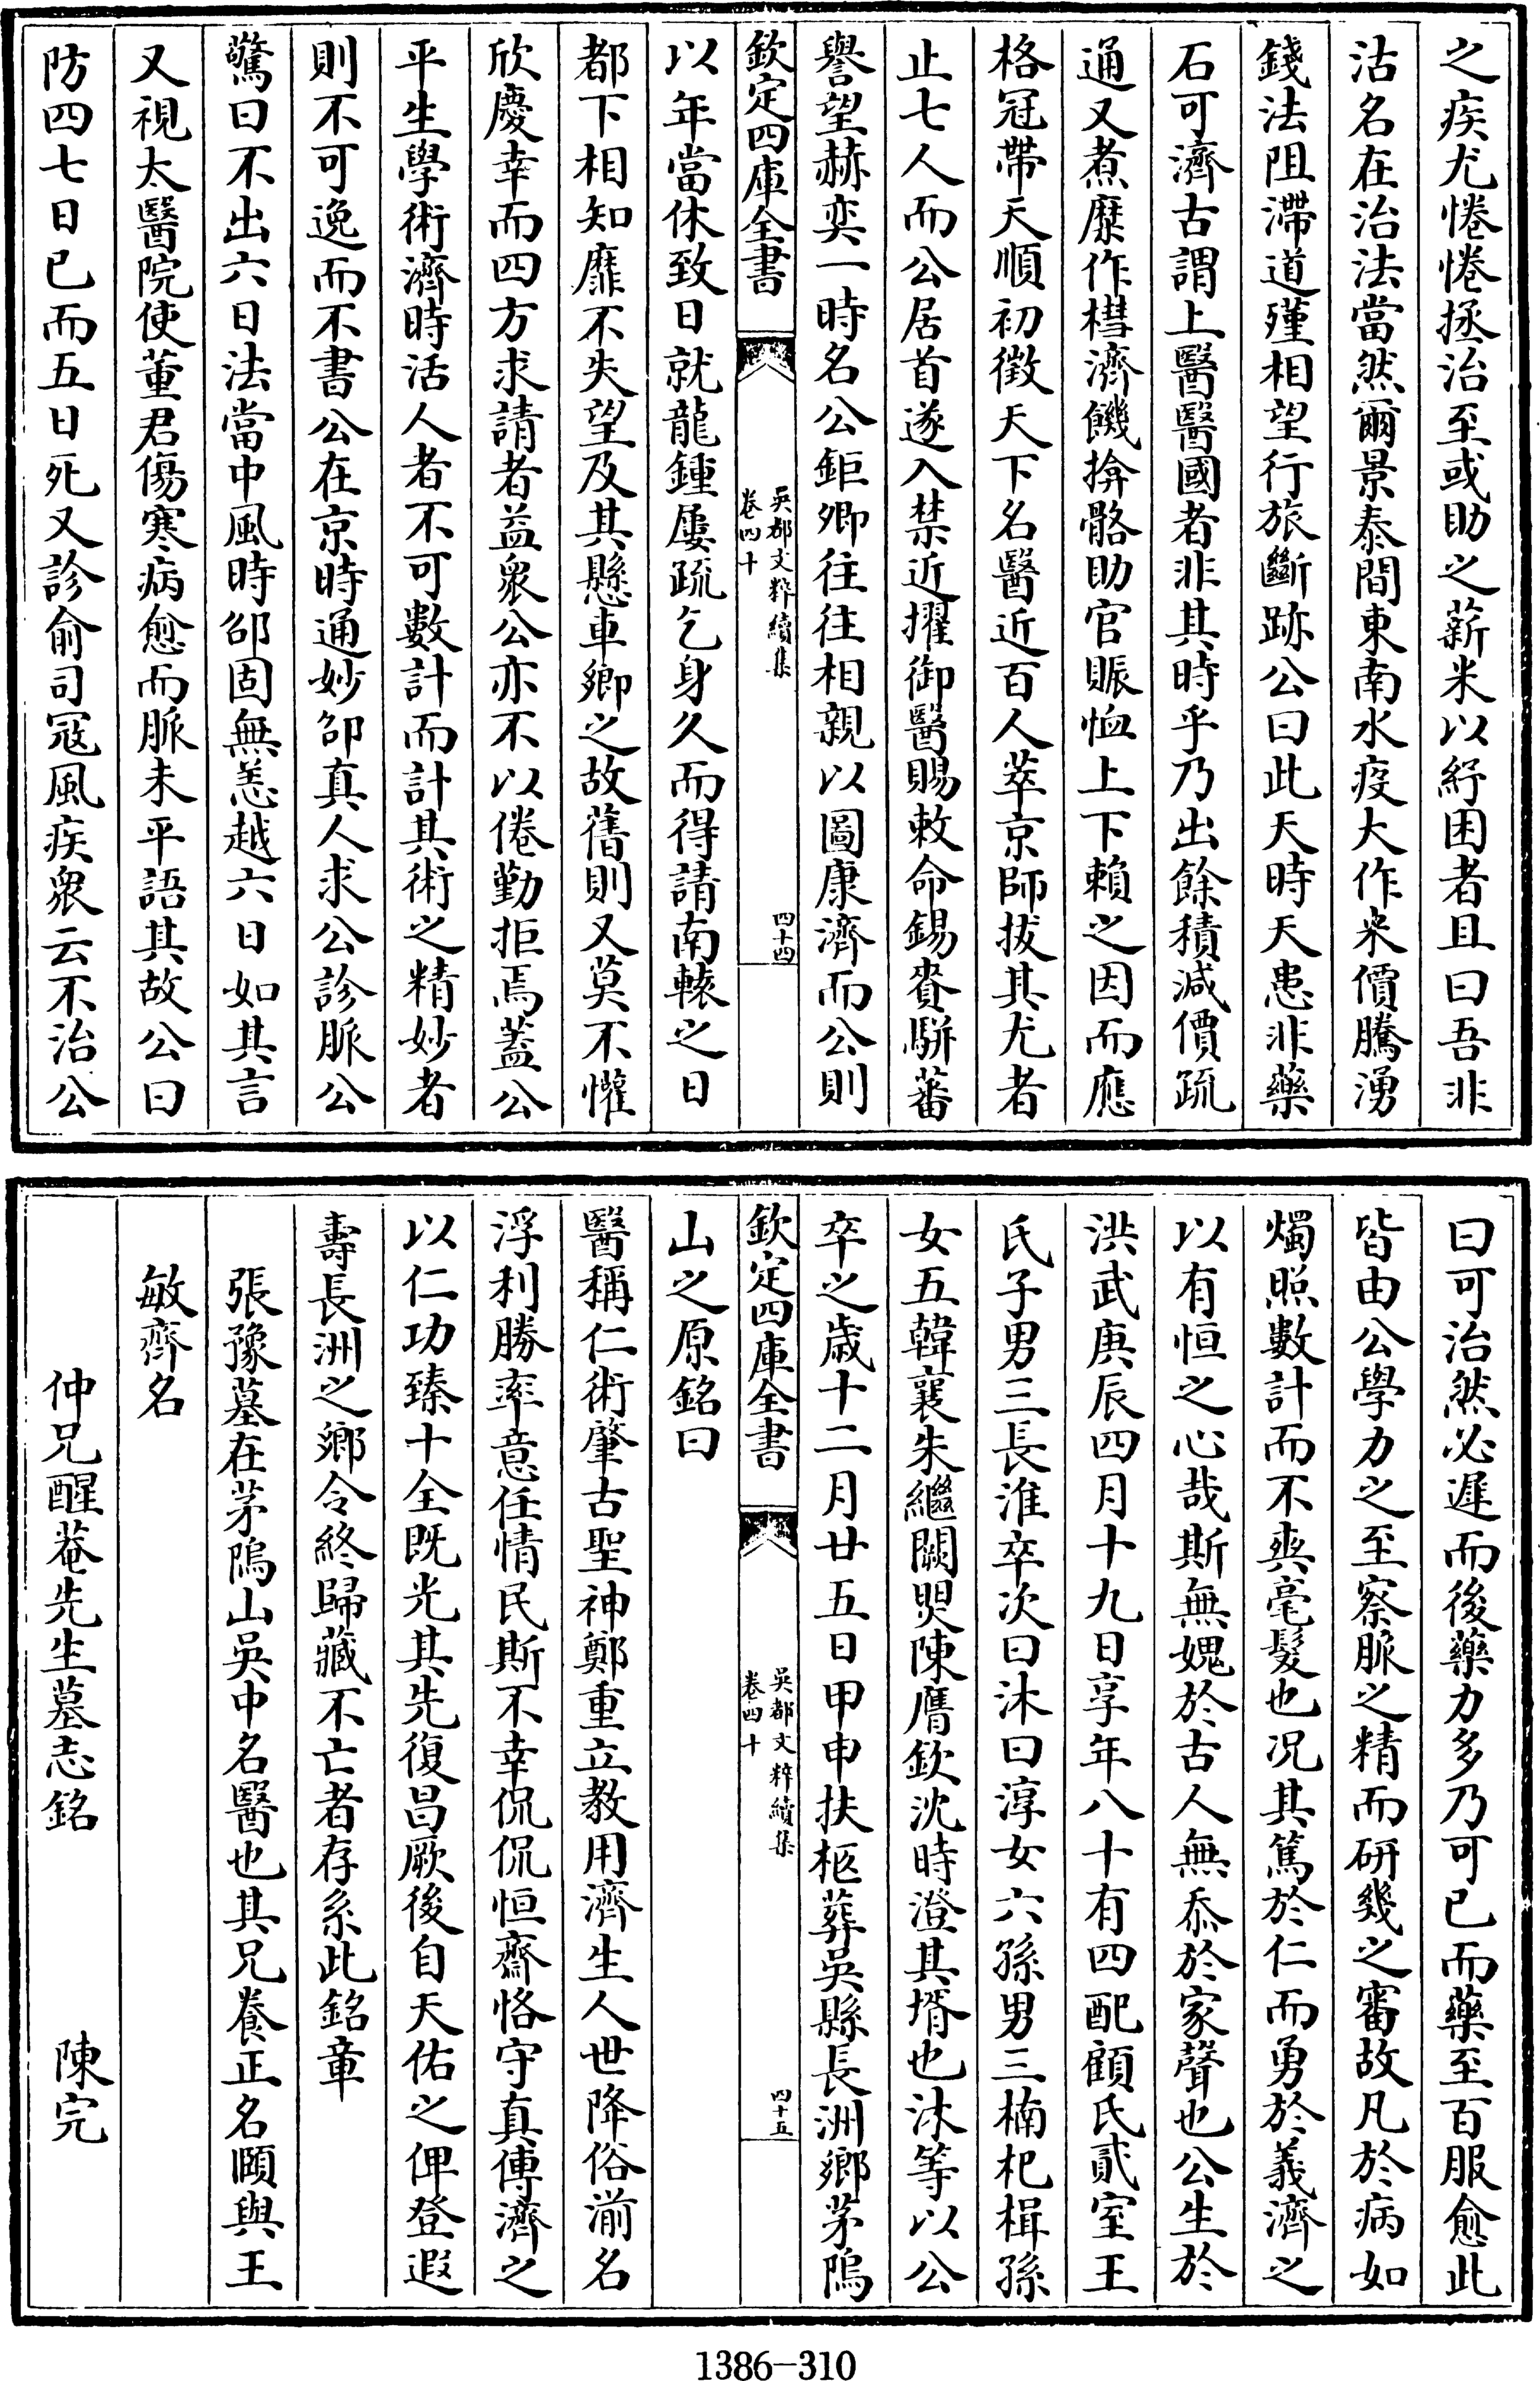 之疾尤惓惓拯治至或助之薪米以紓困者且曰吾非
沽名在治法當然爾景泰間東南水疫大作米價騰湧
錢法阻滯道殣相望行旅斷跡公曰此天時天患非藥
石可濟古謂上醫醫國者非其時乎乃出餘積減價疏
通又煮糜作槥濟饑揜骼助官賑恤上下賴之因而應
格冠帶天順初徵天下名醫近百人萃京師拔其尤者
止七人而公居首遂入禁近擢御醫賜敕命錫賚駢蕃
譽望赫奕一時名公鉅卿往往相親以圖康濟而公則
欽定四庫全書
吳都文粹續集
卷四十
四十四
以年當休致日就龍鍾屢疏乞身久而得請南轅之日
都下相知靡不失望及其懸車鄉之故舊則又莫不懽
欣慶幸而四方求請者益衆公亦不以倦勤拒焉蓋公
平生學術濟時活人者不可數計而計其術之精妙者
則不可逸而不書公在京時通妙邵真人求公診脈公
驚曰不出六日法當中風時邵固無恙越六日如其言
又視太醫院使董君傷寒病愈而脈未平語其故公曰
防四七日已而五日死又診俞司冦風疾衆云不治公
曰可治然必遲而後藥力多乃可已而藥至百服愈此
皆由公學力之至察脈之精而研幾之審故凡於病如
燭照數計而不爽毫髮也况其篤於仁而勇於義濟之
以有恒之心哉斯無媿於古人無忝於家聲也公生於
洪武庚辰四月十九日享年八十有四配顧氏貳室王
氏子男三長淮卒次曰沐曰淳女六孫男三楠杞楫孫
女五韓襄朱繼闕炅陳膺欽沈時澄其壻也沐等以公
卒之歲十二月廿五日甲申扶柩葬吳縣長洲鄉茅隝
欽定四庫全書
吳都文粹續集
卷四十
四十五
山之原銘曰
醫稱仁術肇古聖神鄭重立教用濟生人世降俗湔名
浮利勝率意任情民斯不幸侃侃恒齋恪守真傳濟之
以仁功臻十全既光其先復昌厥後自天佑之俾登遐
壽長洲之鄉令終歸藏不亡者存系此銘章
張豫墓在茅隝山吳中名醫也其兄養正名頤與王
敏齊名
仲兄醒菴先生墓志銘
陳完
1386-310